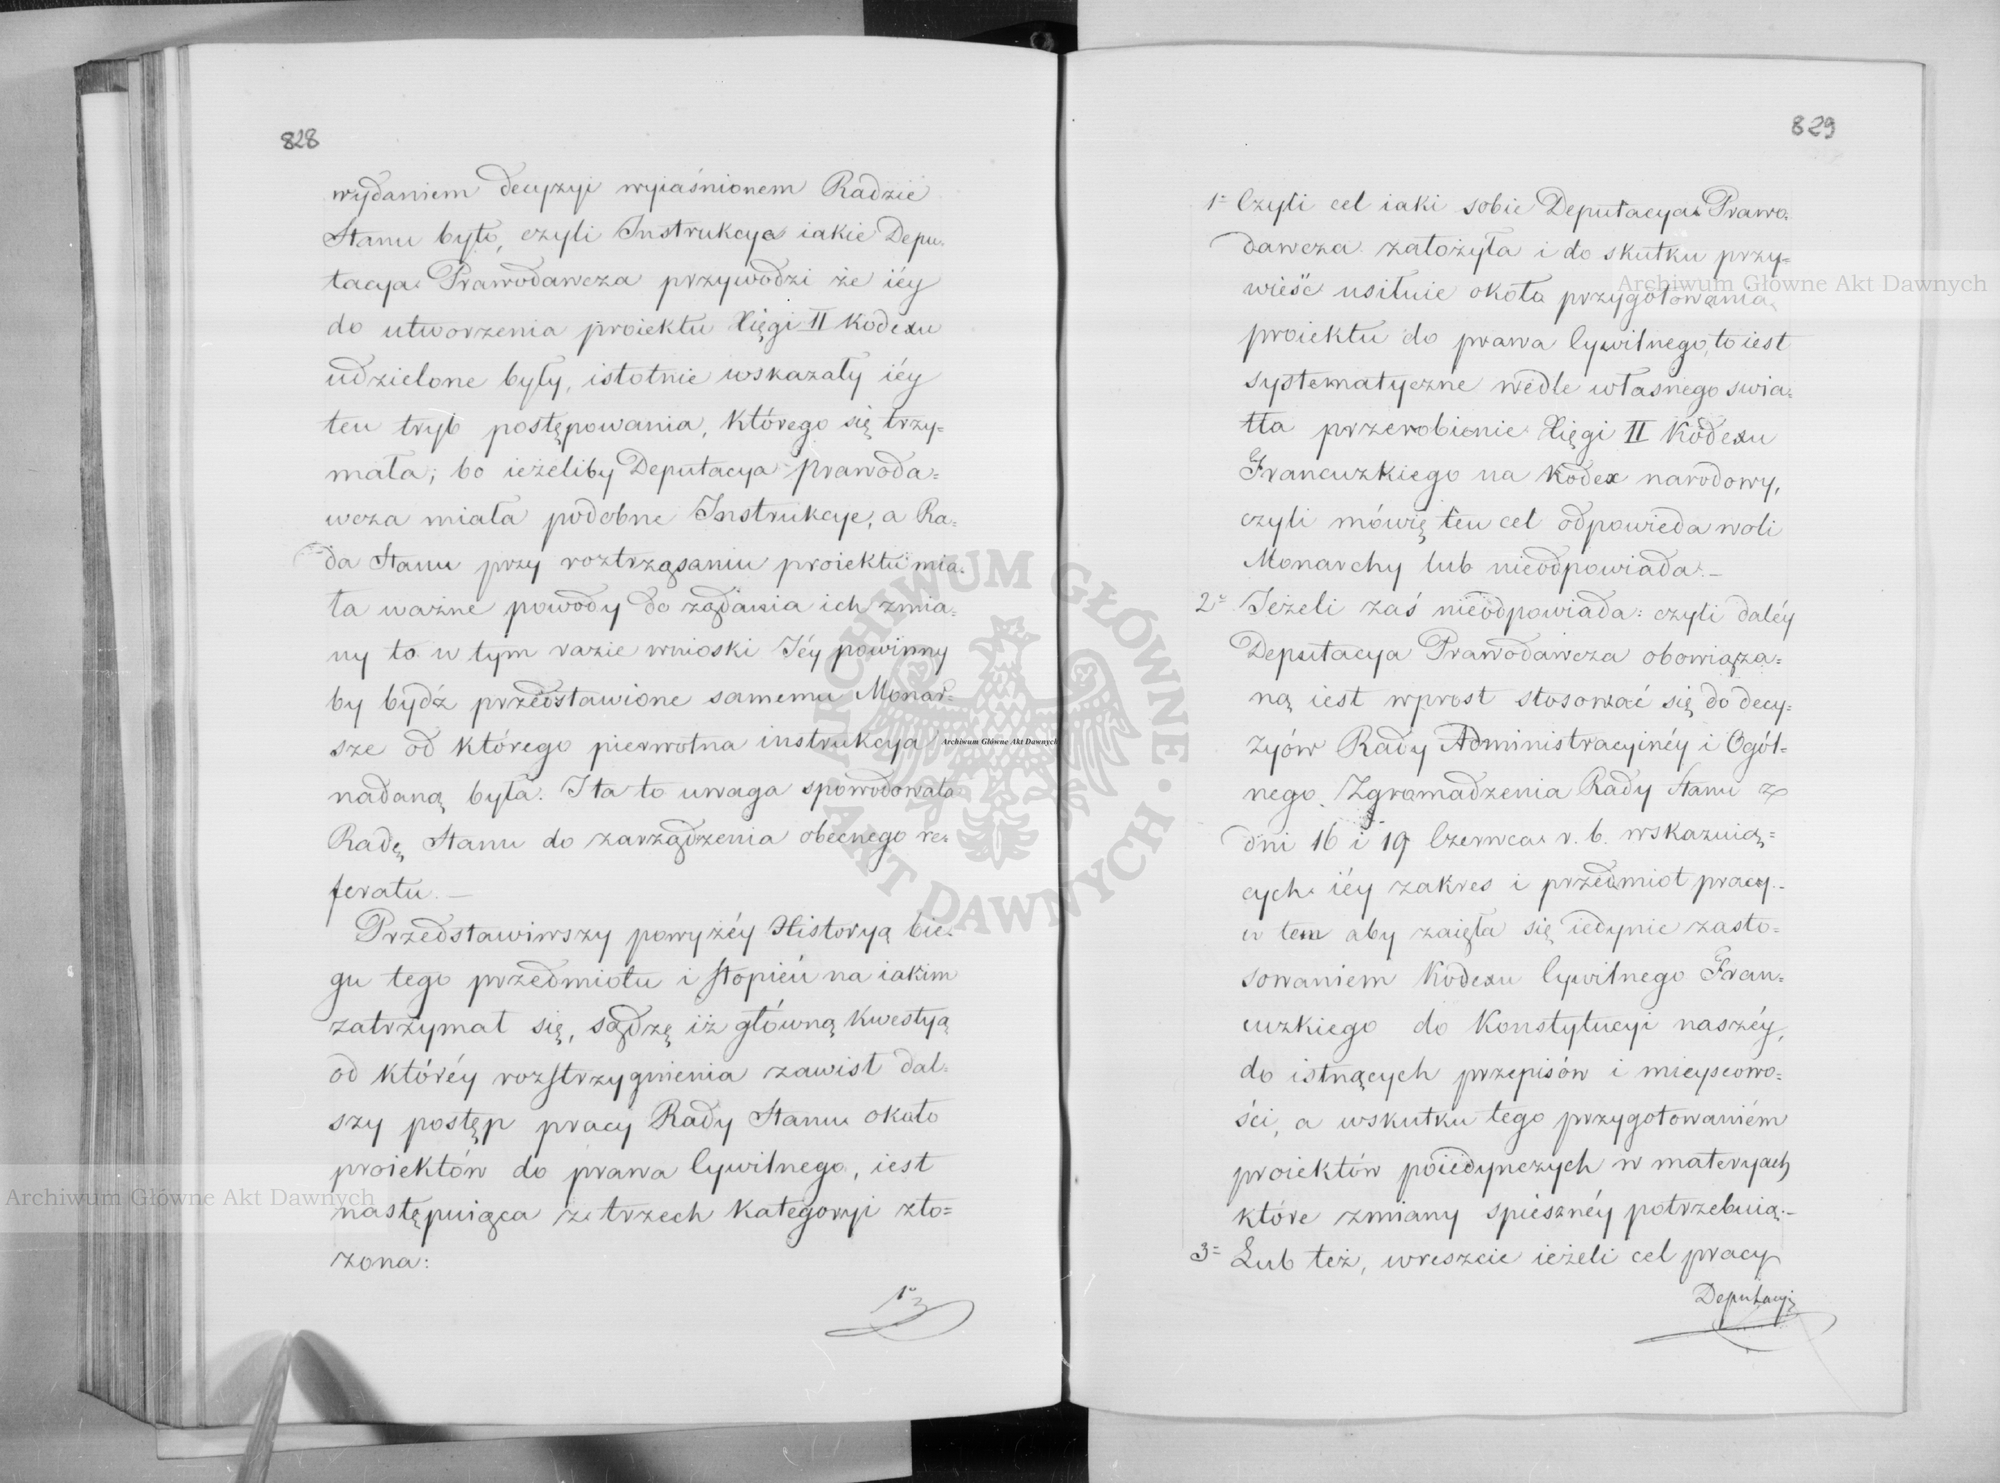 828
wydaniem decyzyi wyiaśnionem Radzie
Stanu było, czyli Instrukcye iakie Depu-
tacya Prawodawcza przywodzi że iéy
do utworzenia proiektu Xięgi II Kodexu
udzielone były, istotnie wskazały iéy
ten tryb postępowania, którego się trzy=
mała; bo ieżeliby Deputacya prawoda=
wcza miała podobne Instrukcye, a Ra=
da Stanu przy roztrząsaniu proiektu mia=
ła ważne powody do żądania ich zmia=
ny to w tym razie wnioski Jéy powinny
by bydź przedstawione samemu Monar=
sze od którego pierwotna instrukcya
nadaną była. I ta to uwaga spowodowała
Radę Stanu do zarządzenia obecnego re=
feratu. —
Przedstawiwszy powyżéy Historyą bie=
gu tego przedmiotu i stopień na iakim
zatrzymał się, sądzę iż główną kwestyą
od któréy rozstrzygnienia zawisł dal=
szy postęp pracy Rady Stanu około
proiektów do prawa Cywilnego, iest
następuiąca z trzech kategoryi zło=
żona:
1º
829
1º Czyli cel iaki sobie Deputacya Prawo=
dawcza założyła i do skutku przy=
wieść usiłuie około przygotowania
proiektu do prawa Cywilnego, to iest
systematyczne wedle własnego świa=
tła przerobienie Xięgi II Kodexu
Francuzkiego na Kodex narodowy,
czyli mówię ten cel odpowieda woli
Monarchy lub nieodpowiada. —
2º Jeżeli zaś nieodpowiada: czyli daléy
Deputacya Prawodawcza obowiąza=
ną iest wprost stosować się do decy=
zyów Rady Administracyinéy i Ogól=
nego Zgromadzenia Rady Stanu z
dni 16 i 19 Czerwca r. b. wskazuią=
cych iéy zakres i przedmiot pracy —
w tem aby zaięła się iedynie zasto=
sowaniem Kodexu Cywilnego Fran=
cuzkiego do Konstytucyi naszéy,
do istnących przepisów i mieyscowo=
ści, a wskutku tego przygotowaniém
proiektów poiedynczych w materyach
które zmiany spieszney potrzebuią. —
3º Lub też, wreszcie ieżeli cel pracy
Deputacyi
Archiwum Główne Akt Dawnych
Archiwum Główne Akt Dawnych
Archiwum Główne Akt Dawnych
ARCHIWUM GŁÓWNE AKT DAWNYCH